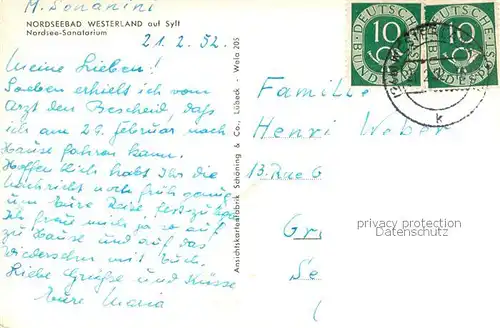 M. Sonanini
NORDSEEBAD WESTERLAND auf Sylt
Nordsee-Sanatorium
21.2.52.
Meine Lieben!
Soeben erhielt ich vom
Arzt den Bescheid, daß
ich am 29. Februar nach
Hause fahren kann.
Hoffentlich habt Ihr die
Nachricht noch früh genug
um Eure Reise festzulegen
Ich freu mich ja so auf
zu Hause und auf das
Wiedersehen mit Euch.
Liebe Grüße und Küsse
Eure Maria
Ansichtskartenfabrik Schöning & Co., Lübeck - Wela 205
DEUTSCHE BUNDESPOST
10
DEUTSCHE BUNDESPOST
10
k
Familie
Henri Weber
13. Rue G
Gr
Se
privacy protection
Datenschutz